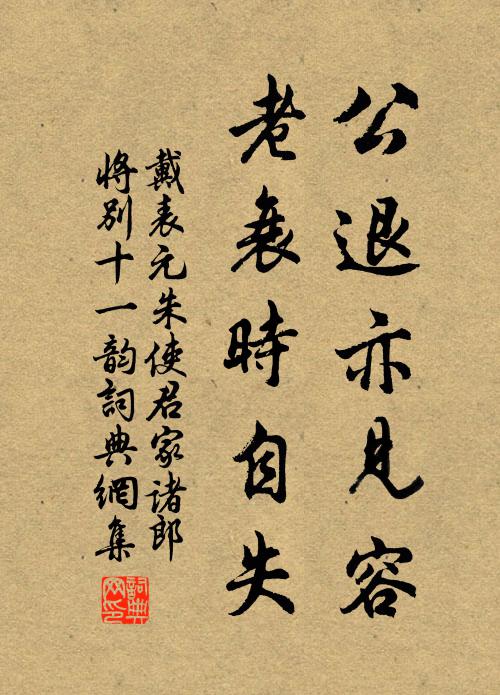 公退亦見容
老衰時自失
戴表元朱使君家諸郎
將別十一韵詞典網集
詞典網印